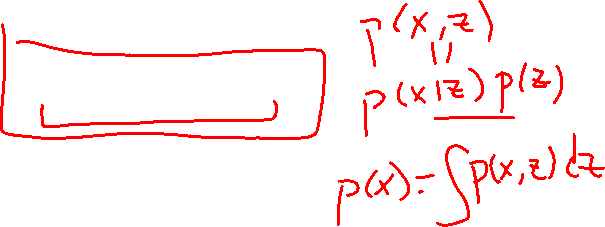 p(x,z)
||
p(x|z) p(z)
p(x) = ∫p(x,z)dz